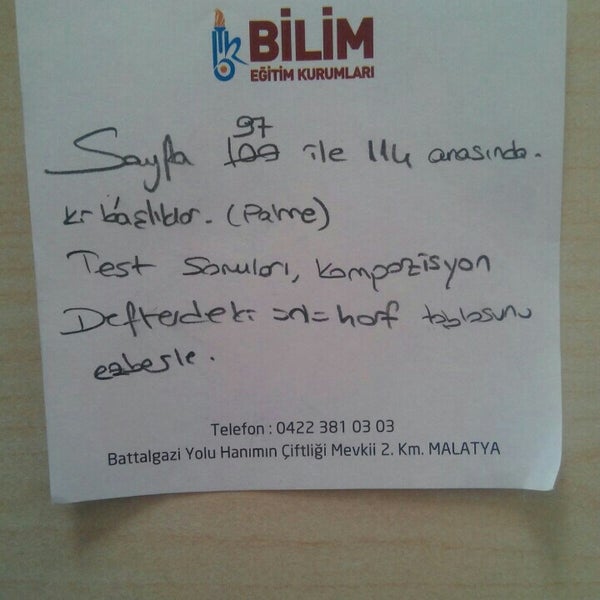 BİLİM
EĞİTİM KURUMLARI
97
Sayfa 100 ile 114 arasında-
ki başlıklar. (Palme)
Test Soruları, kompozisyon
Defterdeki harf tablosunu
ezberle.
Telefon : 0422 381 03 03
Battalgazi Yolu Hanımın Çiftliği Mevkii 2. Km. MALATYA